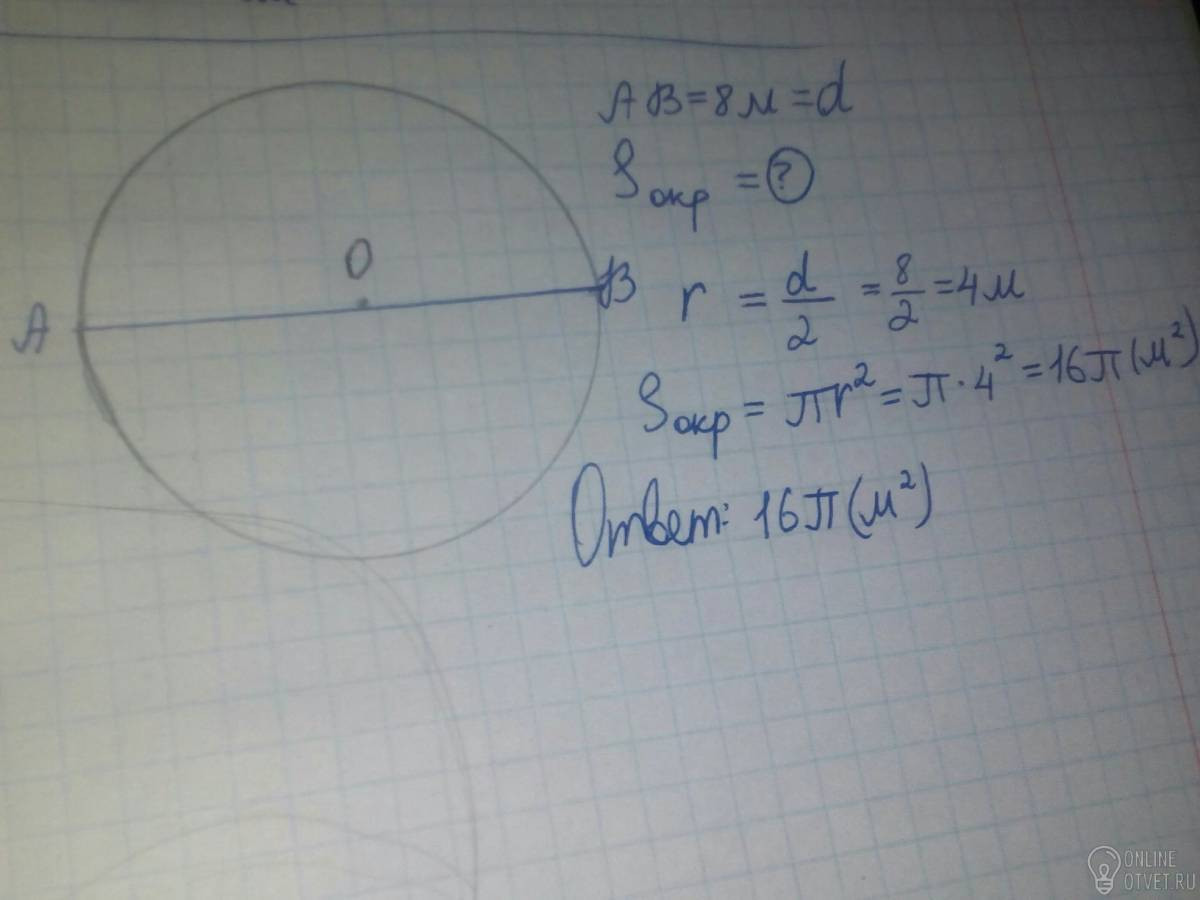 AB=8м=d
Sокр = ?
O
A
B
r = d/2 = 8/2 = 4м
Sокр = πr² = π·4² = 16π(м²)
Ответ: 16π(м²)
ONLINE
OTVET.RU